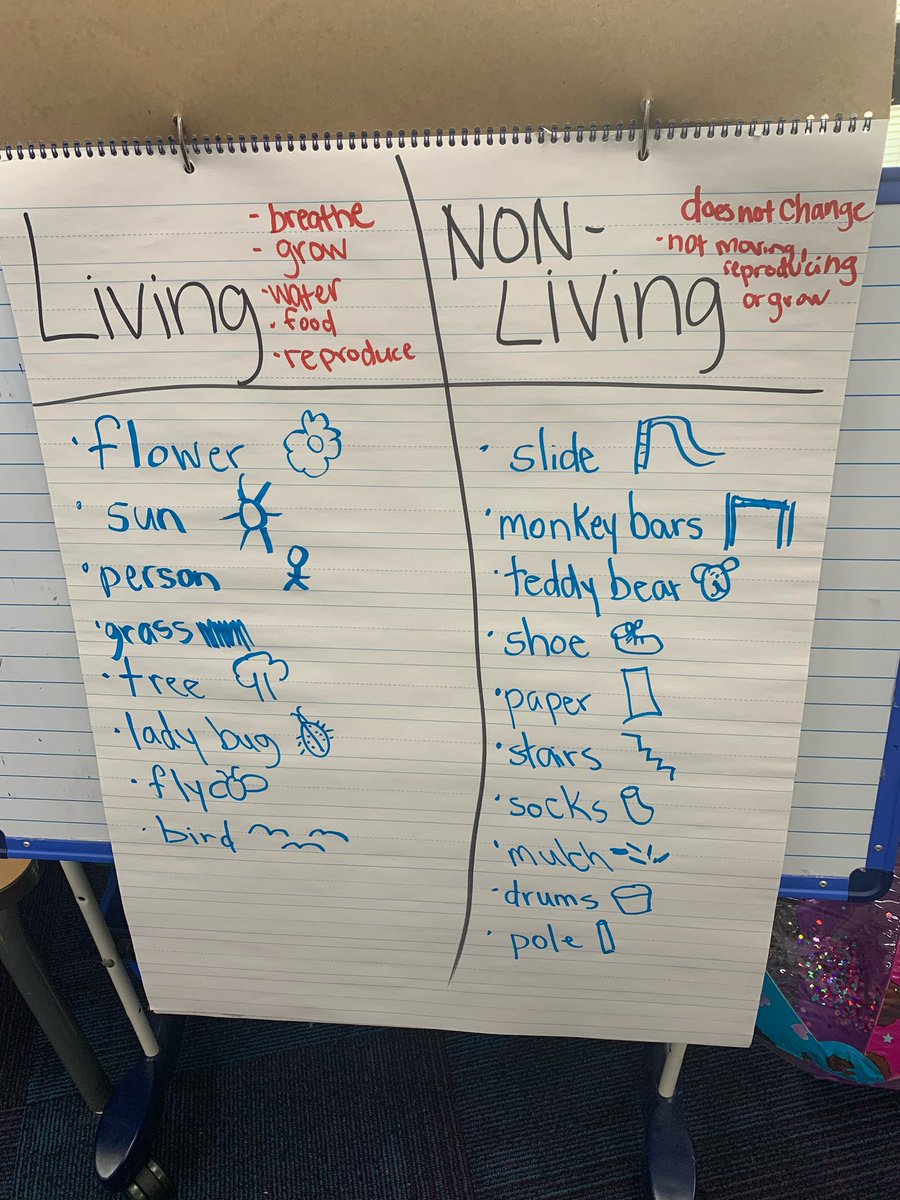 Living
- breathe
- grow
· water
· food
· reproduce
· flower
· sun
· person
· grass
· tree
· lady bug
· fly
· bird
NON-
LiViNg
does not change
· not moving,
reproducing
or grow
· slide
· monkey bars
· teddy bear
· shoe
· paper
· stairs
· socks
· mulch
· drums
· pole